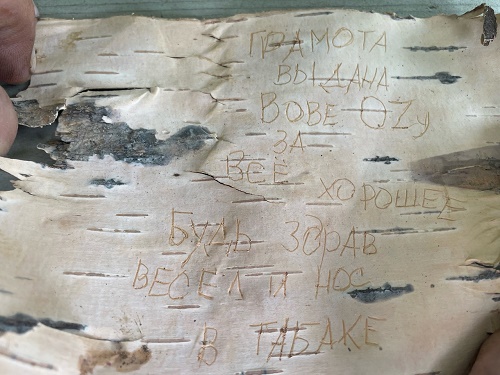 ГРАМОТА
ВЫДАНА
ВОВЕ OZy
ЗА
ВСЁ
ХОРОШЕЕ
БУДЬ ЗДРАВ
ВЕСЕЛ И НОС
В ТАБАКЕ